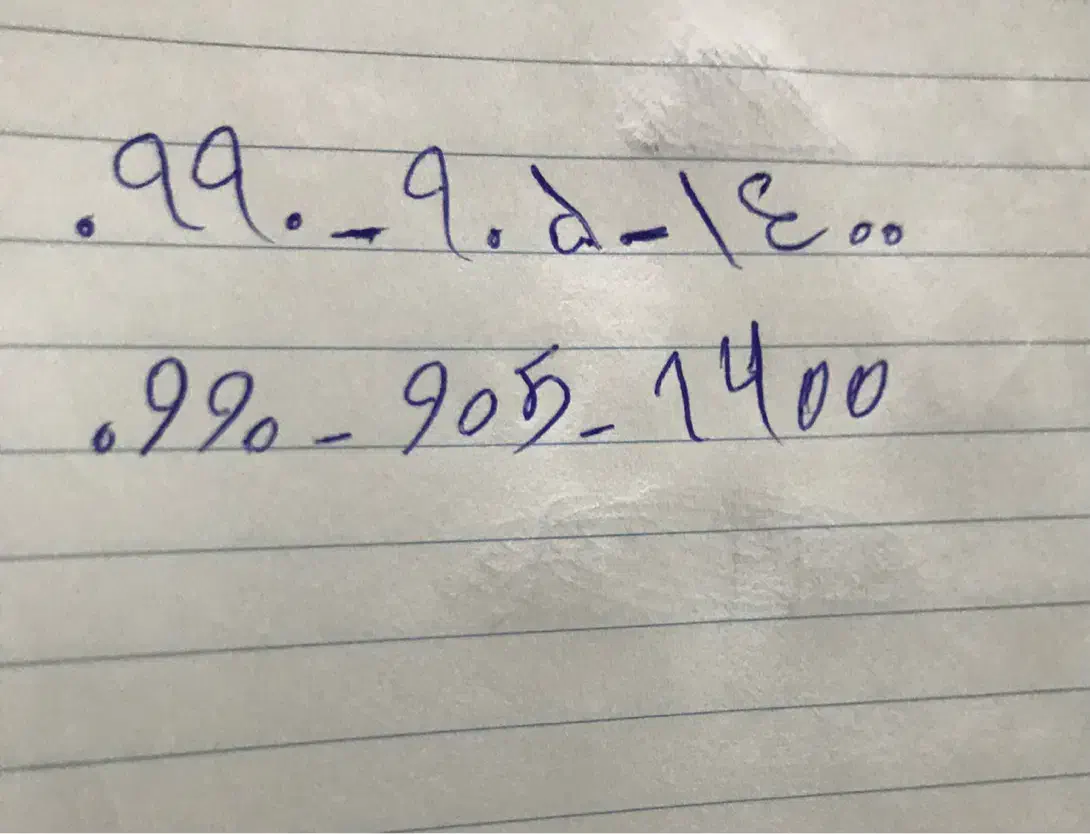 ٠٩٩٠-٩٠۵-١٤٠٠
٠990-905-1400